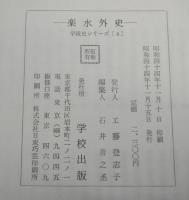 楽水外史
学校史シリーズ〔4〕
昭和四十四年十一月十日 印刷
昭和四十四年十一月十五日 発行
定価 二、三〇〇円
発行人 工藤登志子
編集人 石井善之丞
発行所 学校出版
東京都千代田区岩本町一ノ二ノ一
東京
印刷所 株式会社日東巧芸印刷所